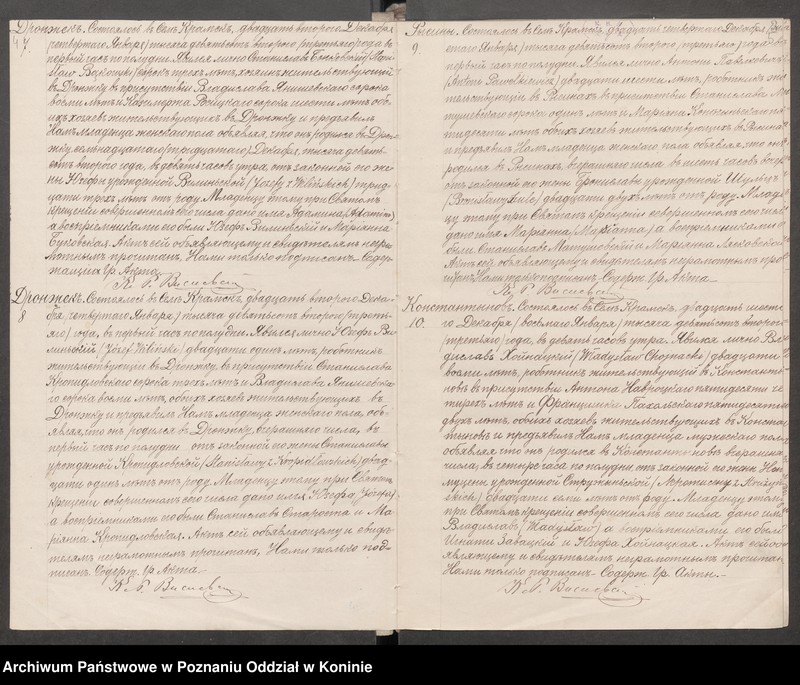 Дронжек. Состоялось в Селе Крамск, двадцать второго Декабря
7. /четвертаго Января/ тысяча девятьсот второго /третьяго/ года в
первый час по полудни. Явился лично Станислав Буковский /Stani-
sław / сорок трех лет, хозяин жительствующий
в Дронжку в присутствии Владислава Янишевского сорока
восьми лет и сорока шести лет обо-
их хозяев жительствующих в Дронжку и предъявил
Нам младенца женского пола объявляя, что он родился в Дрон-
жку семнадцатаго /тридцатаго/ Декабря, тысяча девять-
сот второго года, в девять часов утра, от законной его же-
ны Юзефы урожденной Вилинской /Józefy z Wilińskich/ трид-
цати трех лет от роду. Младенцу этому при Святом
крещении совершенном сего числа дано имя
а восприемниками его были Юзеф Вилинский и Марианна
Буковская. Акт сей объявляющему и свидетелям негра-
мотным прочитан, Нами только подписан. Содер-
жащий Гр. Акты.
Дронжек. Состоялось в Селе Крамск, двадцать второго Декаб-
8 бря /четвертаго Января/ тысяча девятьсот второго /треть-
яго/ года, в первый час по полудни. Явился лично Юзеф Ви-
линский /Józef Wiliński/ двадцати один лет, работник
жительствующий в Дронжку, в присутствии Станислава
Кропидловского сорока трех лет и Владислава Янишевска-
го сорока восьми лет, обоих хозяев жительствующих в
Дронжку и предъявил Нам младенца женского пола, объ-
являя, что он родился в Дронжку, вчерашнего числа, в
первый час по полудни от законной его жены Станиславы
урожденной Кропидловской /Stanisławy z Kropidłowskich/ двад-
цати один лет от роду. Младенцу этому при Святом
крещении совершенном сего числа дано имя Юзефа /Józefa/
а восприемниками его были Станислав Староста и Ма-
рианна Кропидловская. Акт сей объявляющему и свиде-
телям неграмотным прочитан, Нами только под-
писан. Содерж. Гр. Акта.-
Рысины. Состоялось в Селе Крамск, двадцать четвертого Декабря
9. /шестаго Января/ тысяча девятьсот второго /третьяго/ года в
первый час по полудни. Явился лично Антони
/Antoni / двадцати шести лет, работник жи-
тельствующий в Рысинах в присутствии Станислава Ма-
тушевского сорока один лет и Марияна пя-
тидесяти лет обоих хозяев жительствующих в Рысинах
и предъявил Нам младенца женского пола, объявляя, что он
родился в Рысинах, вчерашнего числа в шесть часов
от законной его жены Брониславы урожденной Шульц
/Bronisławy Szulc/ двадцати двух лет от роду. Младен-
цу этому при Святом крещении совершенном сего числа
дано имя Марианна /Marianna/ а восприемниками его
были Станислав Матушевский и Марианна
Акт сей объявляющему и свидетелям неграмотным про-
читан Нами только подписан. Содерж. Гр. Акта
Константынов. Состоялось в Селе Крамск, двадцать шесто-
10. го Декабря /восьмаго Января/ тысяча девятьсот второго
/третьяго/ года, в девять часов утра. Явился лично Вла-
дислав Хойнацкий /Władysław Chojnacki/ двадцати
восьми лет, работник жительствующий в Константы-
нове в присутствии Антона Навроцкого пятидесяти че-
тырех лет и Францишка пятидесяти
двух лет, обоих хозяев жительствующих в Констан-
тынове и предъявил Нам младенца мужеского пола
объявляя что он родился в Константынове вчерашнего
числа, в четыре часа по полудни от законной его жены
урожденной
/ двадцати семи лет от роду. Младенцу этому
при Святом крещении совершенном сего числа дано имя
Владислав /Władysław/ а восприемниками его были
Игнаты Завацкий и Юзефа Хойнацкая. Акт сей объ-
являющему и свидетелям неграмотным прочитан
Нами только подписан.- Содерж. Гр. Акты.-
Archiwum Państwowe w Poznaniu Oddział w Koninie